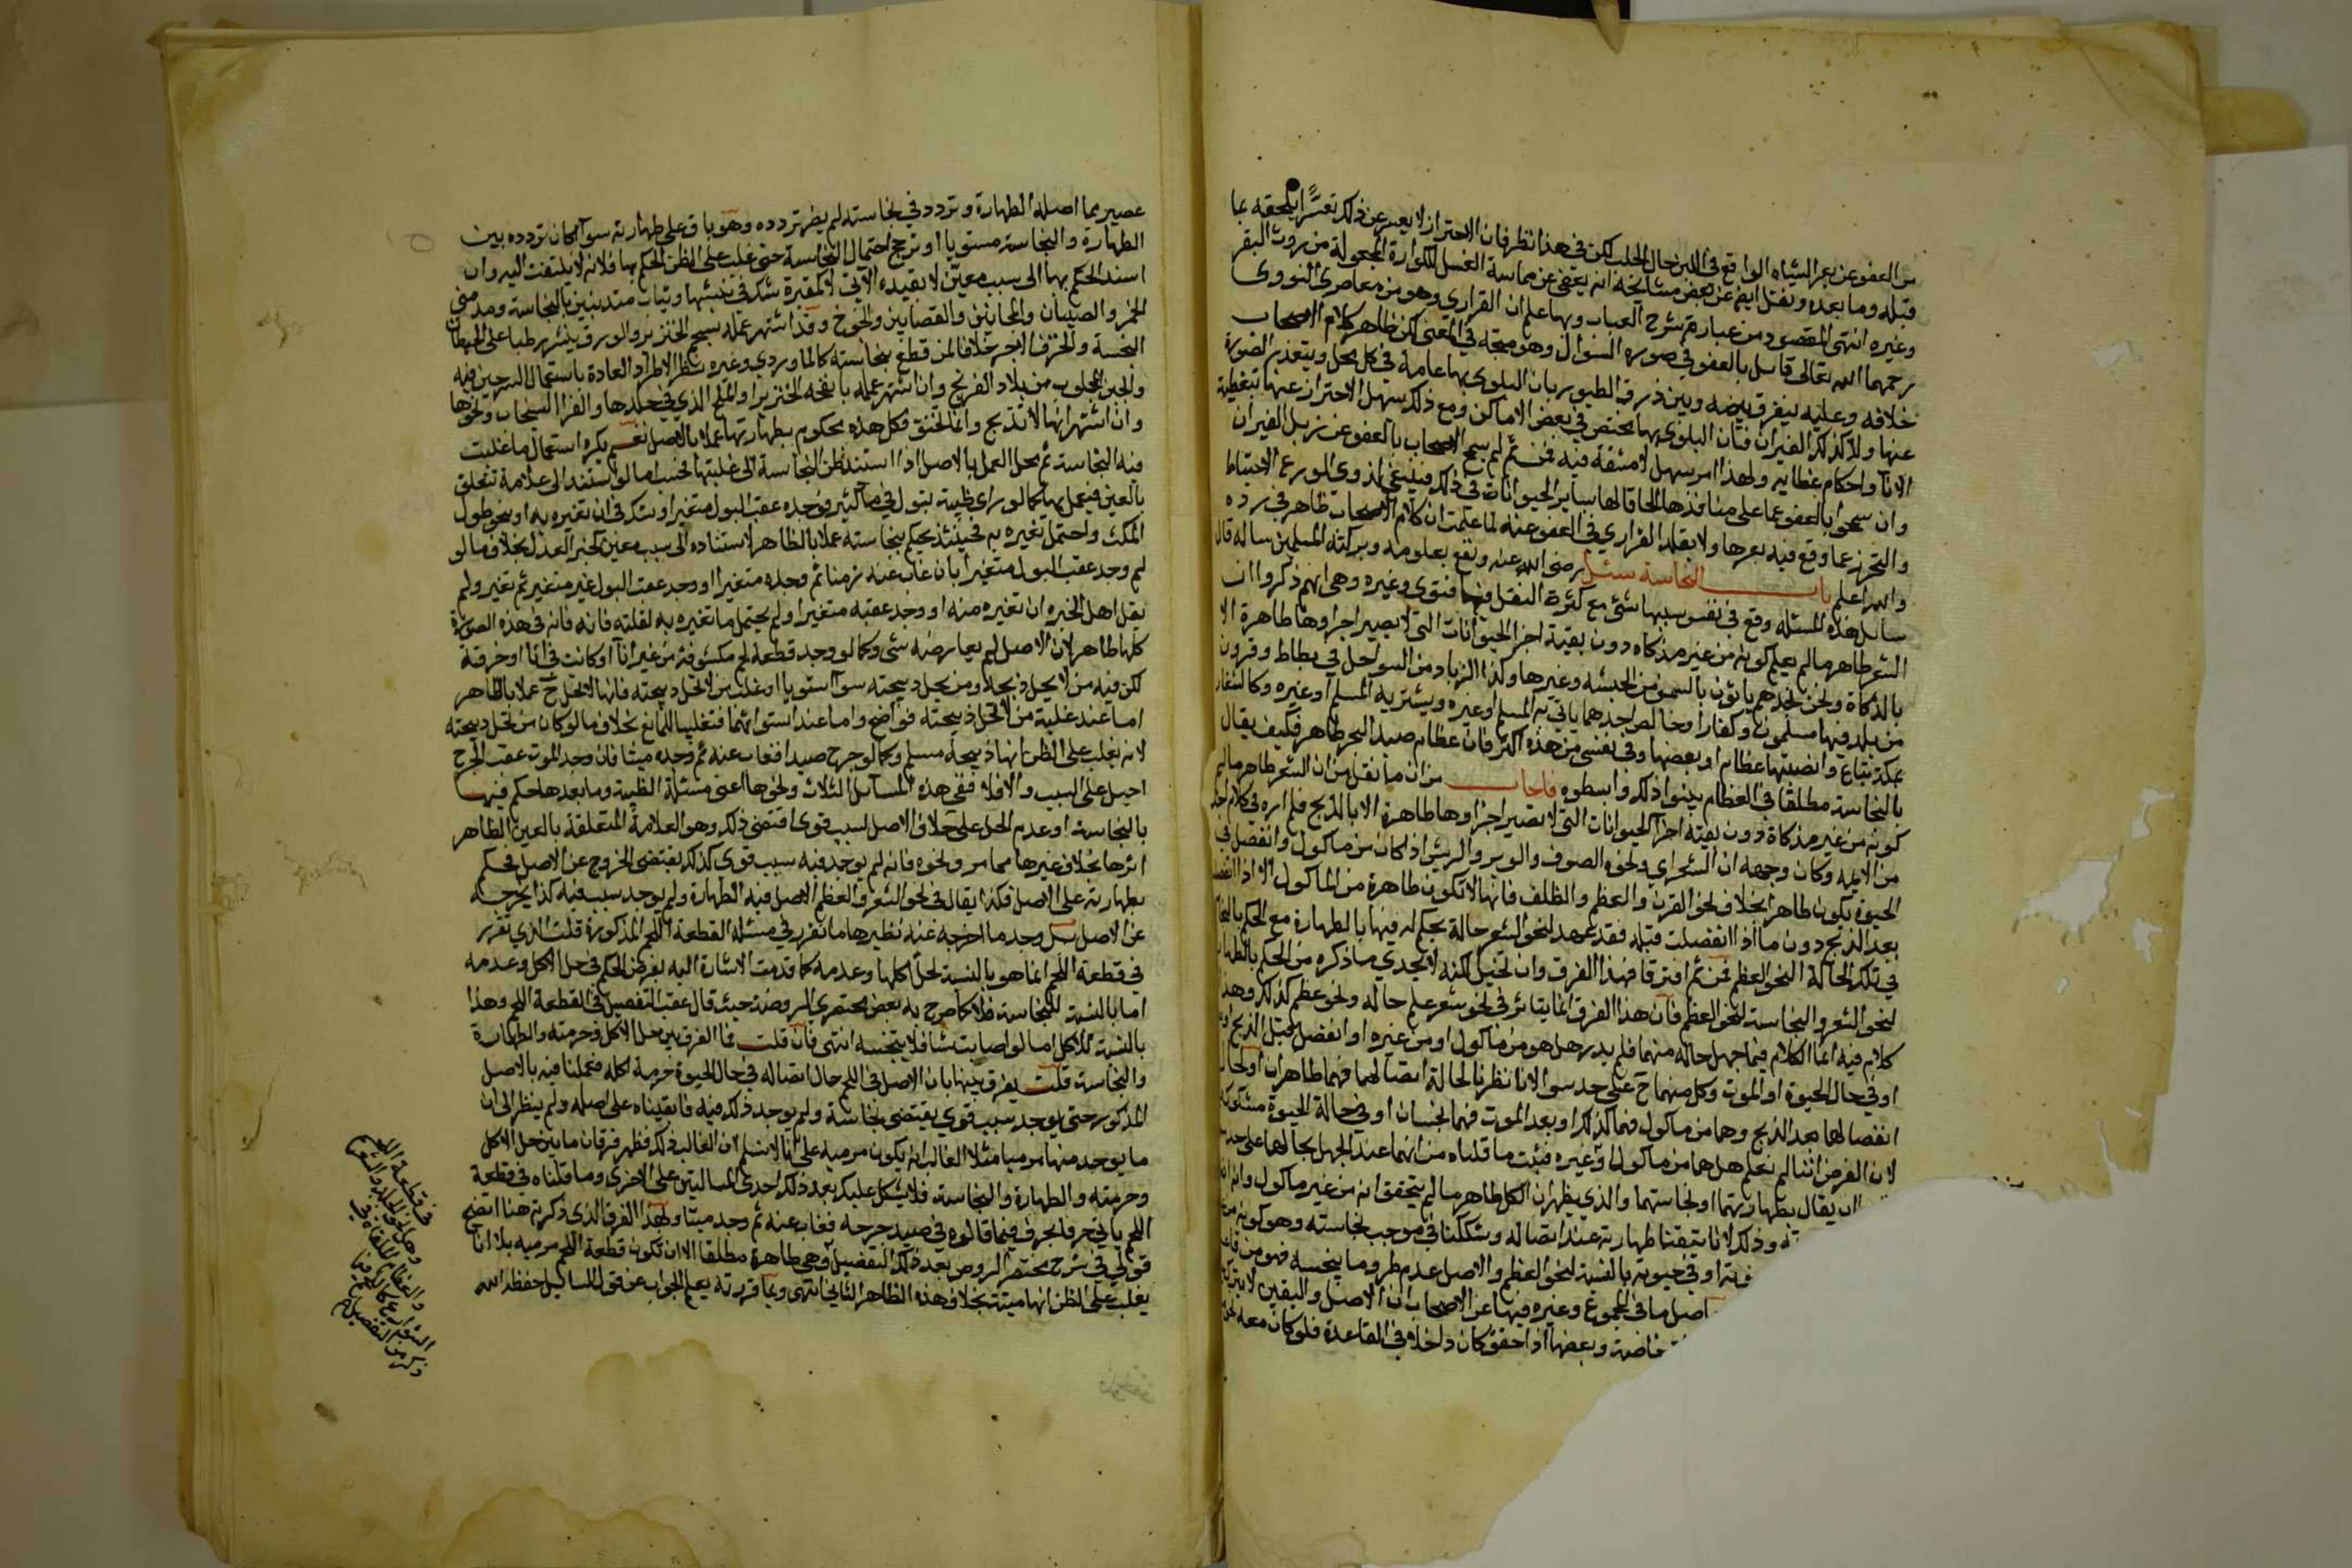 من العفو عن بعر الشياه الواقع في اللبن حال الحلب لكن في هذا نظر فان الاحتراز لا يعسر عن ذلك تعسرا يلحقه بما
قبله وما بعده ونقل ايضا عن بعض مشايخه انه يعفى عن مماسة العسل للكوارة المجعولة من روث البقر
وغيره انتهى المقصود من عبارة شرح العباب وبها علم ان الفزاري وهو من معاصري النووي
رحمهما الله تعالى قايل بالعفو في صورة السؤال وهو متجه في المعنى لكن ظاهر كلام الاصحاب
خلافه وعليه يفرق بينه وبين ذرق الطيور بان البلوى بها عامة في كل محل ويتعذر الصون
عنها ولا كذلك الفيران فان البلوى بها يختص في بعض الاماكن ومع ذلك يسهل الاحتراز عنها بتغطية
الانآ واحكام غطايه ولهذا امر سهل لا مشقة فيه فمن ثم لم يسمح الاصحاب بالعفو عن زبل الفيران
وان سمحوا بالعفو عما على منافذها الحاقا لها بساير الحيوانات في ذلك فينبغي لذوي الورع الاحتياط
والتحرز عما وقع فيه بعرها ولا يقلد الفزاري في العفو عنه لما علمت ان كلام الاصحاب ظاهر في رده
والله اعلم باب النجاسة سئل رضي الله عنه ونفع بعلومه وبركته المسلمين ساله قال
سايل هذه المسئلة وقع في نفس سببها شئ مع كثرة النقل فيها فتوى وغيره وهي انهم ذكروا ان
الشعر طاهر ما لم يعلم كونه من غير مذكاة دون بقية اجزا الحيوانات التي لا يصير اجزاوها طاهرة الا
بالذكاة ونحن نجدهم ياتون بالسمن من الحبشه وغيرها وكذا الزباد من السواحل في بطاط وقرون
من بلد فيها مسلمون وكفار اوخالص احدهما ياتي به المسلم او غيره ويشتريه المسلم او غيره وكالنقار
بمكة تباع وانصبتها عظام او بعضها وفي نفسي من هذه اكثر فان عظام صيد البحر طاهر فكيف يقال
بالنجاسة مطلقا في العظام بينوا ذلك وابسطوه فاجاب من ان ما نقل من ان الشعر طاهر ما لم
كونه من غير مذكاة دون بقية اجزآ الحيوانات التي لا تصير اجزاوها طاهرة الا بالذبح فلم اره في كلام احد
من الايمه وكان وجهه ان الشعر اي ونحوه الصوف والوبر والريش اذا كان من ماكول وانفصل في
الحيوة يكون طاهرا بخلاف نحو القرن والعظم والظلف فانها لا تكون طاهرة من الماكول الا اذا انفصلت
بعد الذبح دون ما اذا انفصلت قبله فقد عهد لنحو الشعر حالة يحكم له فيها بالطهارة مع الحكم بالنجا
في تلك الحالة لنحو العظم فمن ثم افترقا فهذا الفرق وان تخيل لكنه لا يجدي ما ذكره من الحكم بالطها
لنحو الشعر والنجاسة لنحو العظم فان هذا الفرق انما يتاثر في نحو شعر علم حاله ونحو عظم كذلك وهذا
كلام فيه انما الكلام فيما جهل حاله منهما فلم يدر هل هو من ماكول او من غيره او انفصل قبل الذبح او
او في حال الحيوة او الموت وكل منهما ح على حد سوا لانا نظرنا لحالة اتصالهما فهما طاهران او لحال
انفصالهما بعد الذبح وهما من ماكول فهما كذلك او بعد الموت فهما نجسان او في حالة الحيوة مشكوك
لان الفرض اننا لم نعلم هل هما من ماكول او غيره فثبت ما قلناه من انهما عند الجهل بحالهما على حد
ان يقال بطهارتهما او نجاستهما والذي يظهر ان الكل طاهر ما لم يتحقق انه من غير ماكول وانه
وذلك لانا تيقنا طهارته عند اتصاله وشككنا في موجب نجاسته وهو كونه من
او في حيوته بالنسبة لنحو العظم والاصل عدم طرو ما ينجسه فهو من
اصل ما في المجموع وغيره فيها عن الاصحاب ان الاصل واليقين لا يترك
وبعضها اذا حقق كان داخلا في القاعدة فلو كان معه
عصير مما اصله الطهارة وتردد في نجاسته لم يضر تردده وهو باق على طهارته سوآ كان تردده بين
الطهارة والنجاسة مستويا او ترجح احتمال النجاسة حتى غلب على الظن الحكم بها فلانه لا يلتفت اليه وان
اسند الحكم بها الى سبب معين لا بقيده الآتي كمقبرة شك في نبشها وثياب متدينين بالنجاسة ومدمني
الخمر والصبيان والمجانين والقصابين والجوخ وقد اشتهر عمله بشحم الخنزير والورق ينشر رطبا على الحيطان
النجسة والخزف الاجر خلافا لمن قطع بنجاسته كالماوردي وغيره نظرا لاطراد العادة باستعمال السرجين فيه
والجبن المجلوب من بلاد الفرنج وان اشتهر عمله بانفحه الخنزير او الملح الذي في جلدها والفرا السنجاب ونحوها
وان اشتهر انها لا تذبح وانما تخنق فكل هذه محكوم بطهارتها عملا بالاصل نعم يكره استعمال ما غلبت
فيه النجاسة ثم محل العمل بالاصل اذا استند ظن النجاسة الى غلبتها لجنسه اما لو استند الى علامة تتعلق
بالعين فيعمل بها كما لو راى ظبية تبول في مآ كثير فوجده عقب البول متغيرا وشك في ان تغيره به او بنحو طول
المكث واحتمل تغيره به فحينئذ يحكم بنجاسته عملا بالظاهر لاستناده الى سبب معين كخبر العدل بخلاف ما لو
لم وجد عقب البول متغيرا بان غاب عنه زمنا ثم وجده متغيرا او وجد عقب البول غير متغير ثم تغير ولم
يقل اهل الخبره ان تغيره منه او وجد عقبه متغيرا ولم يحتمل ما تغيره به لقلته فانه فانه في هذه الصورة
كلها طاهر لان الاصل لم يعارضه شئ وكما لو وجد قطعة لحم مكشوفة من غير انآ او كانت في انآ او خرقة
لكن فيه من لا يحل ذبيحة ومن تحل ذبيحته سوآ استويا او غلب من لا تحل ذبيحته فانها لا تحل ح عملا بالظاهر
اما عند غلبة من لا تحل ذبيحته فواضح واما عند استوائهما فتغليبا للمانع بخلاف ما لو كان من تحل ذبيحته
لانه يغلب على الظن انها ذبيحة مسلم وكما لو جرح صيدا فغاب عنه ثم وجده ميتا فان وجد الموت عقب الجرح
احيل على السبب والا فلا ففي هذه المسآئل الثلاث ونحوها اعني مسئلة الظبية وما بعدها حكم فيها
بالنجاسة او عدم الحل على خلاف الاصل لسبب قوى اقتضى ذلك وهو العلامة المتعلقة بالعين الظاهر
اثرها بخلاف غيرها مما مر ونحوه فانه لم يوجد فيه سبب قوى كذلك يقتضي الخروج عن الاصل فحكم
بطهارته على الاصل فكذا يقال في نحو الشعر والعظم الاصل فيه الطهارة ولم يوجد سبب فيه كذا يخرجه
عن الاصل بل وجد ما اخرجه عنه نظيرها ما تقرر في مسئلة القطعة اللحم المذكورة قلت الذي تقرر
في قطعة اللحم انما هو بالنسبة لحل اكلها وعدمه كما قدمت الاشارة اليه بفرض الحكم في حل الاكل وعدمه
اما بالنسبة للنجاسة فلا كما صرح به بعض مختصري الروضة حيث قال عقب التفصيل في القطعة اللحم وهذا
بالنسبة للاكل اما لو اصابت شيا فلا ينجسه انتهى فان قلت فما الفرق بين حل الاكل وحرمته والطهارة
والنجاسة قلت يفرق بينها بان الاصل في اللحم حال اتصاله في حال الحيوة حرمة اكله فعملنا فيه بالاصل
المذكور حتى يوجد سبب قوي يقتضي نجاسة ولم يوجد ذلك فيه فابقيناه على اصله ولم ينظر الى ان
ما يوجد منها مرميا مثلا الغالب انه يكون مرميه على انا لا نسلم ان الغالب ذلك فظهر فرقان ما بين حل الاكل
وحرمته والطهارة والنجاسة فلا يشكل عليك بعد ذلك احدى المسالتين على الاخرى وما قلناه في قطعة
اللحم ياتي حرفا بحرف فيما قالوه في صيد جرحه فغاب عنه ثم وجد ميتا ولهذا الفرق الذي ذكرته هنا اتضح
قولي في شرح مختصر الروض بعد ذلك التفصيل وهي طاهرة مطلقا الا ان تكون قطعة اللحم مرميه بلا انآ
يغلب على الظن انها ميتة بخلاف هذه الظاهر الثاني انتهى وبما قررته يعلم الجواب عن قول السايل حفظه الله
في قطعة اللحم
وهل نحو الجلد والشعر
والعظام الملقاة في
الشوارع كاللحم فيما
ذكر من التفصيل